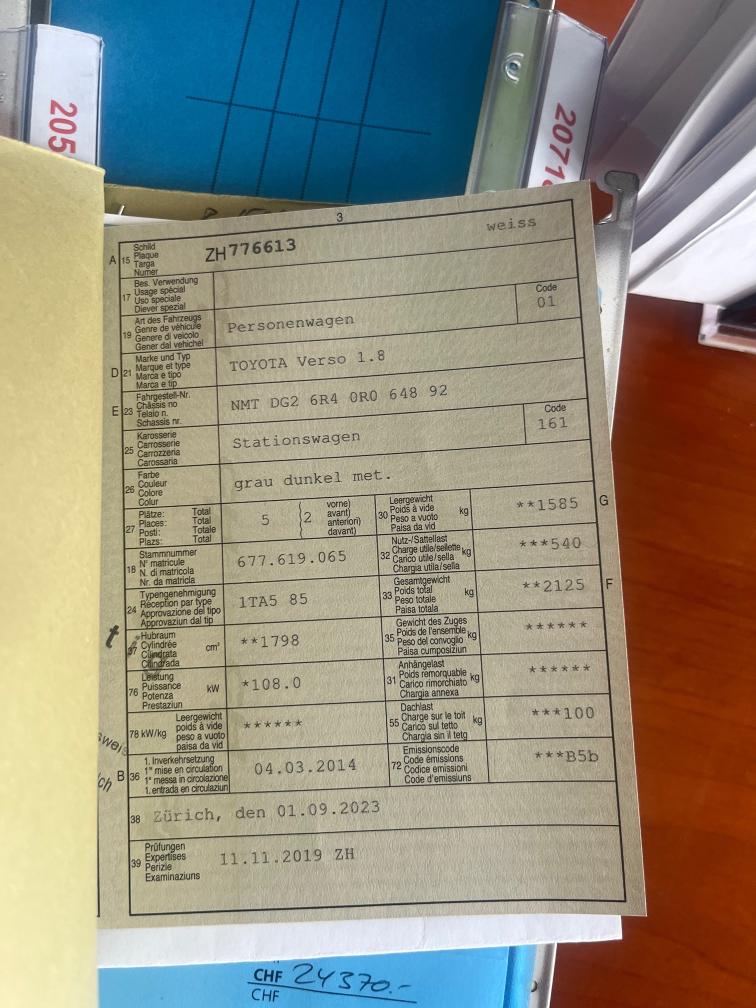 205
2071
3
A 15 Schild
Plaque
Targa
Numer
ZH 776613
weiss
17 Bes. Verwendung
Usage spécial
Uso speciale
Diever spezial
19 Art des Fahrzeugs
Genre de véhicule
Genere di veicolo
Gener dal vehichel
Personenwagen
Code
01
D 21 Marke und Typ
Marque et type
Marca e tipo
Marca e tip
TOYOTA Verso 1.8
E 23 Fahrgestell-Nr.
Châssis no
Telaio n.
Schassis nr.
NMT DG2 6R4 0R0 648 92
25 Karosserie
Carrosserie
Carrozzeria
Carossaria
Stationswagen
Code
161
26 Farbe
Couleur
Colore
Colur
grau dunkel met.
27 Plätze: Total
Places: Total
Posti: Totale
Plazs: Total
5 (2 vorne)
avant)
anteriori)
davant)
30 Leergewicht
Poids à vide kg
Peso a vuoto
Paisa da vid
**1585 G
18 Stammnummer
N° matricule
N. di matricola
Nr. da matricla
677.619.065
32 Nutz-/Sattellast
Charge utile/sellette kg
Carico utile/sella
Chargia utila/sella
***540
24 Typengenehmigung
Réception par type
Approvazione del tipo
Approvaziun dal tip
1TA5 85
33 Gesamtgewicht
Poids total kg
Peso totale
Paisa totala
**2125 F
t
37 Hubraum
Cylindrée cm³
Cilindrata
Cilindrada
**1798
35 Gewicht des Zuges
Poids de l'ensemble kg
Peso del convoglio
Paisa cumposiziun
******
76 Leistung
Puissance kW
Potenza
Prestaziun
*108.0
31 Anhängelast
Poids remorquable kg
Carico rimorchiato
Chargia annexa
******
78 kW/kg Leergewicht
poids à vide
peso a vuoto
paisa da vid
******
55 Dachlast
Charge sur le toit kg
Carico sul tetto
Chargia sin il tetg
***100
B 36 1. Inverkehrsetzung
1re mise en circulation
1a messa in circolazione
1. entrada en circulaziun
04.03.2014
72 Emissionscode
Code émissions
Codice emissioni
Code d'emissiuns
***B5b
38 Zürich, den 01.09.2023
39 Prüfungen
Expertises
Perizie
Examinaziuns
11.11.2019 ZH
CHF 24370.-
CHF